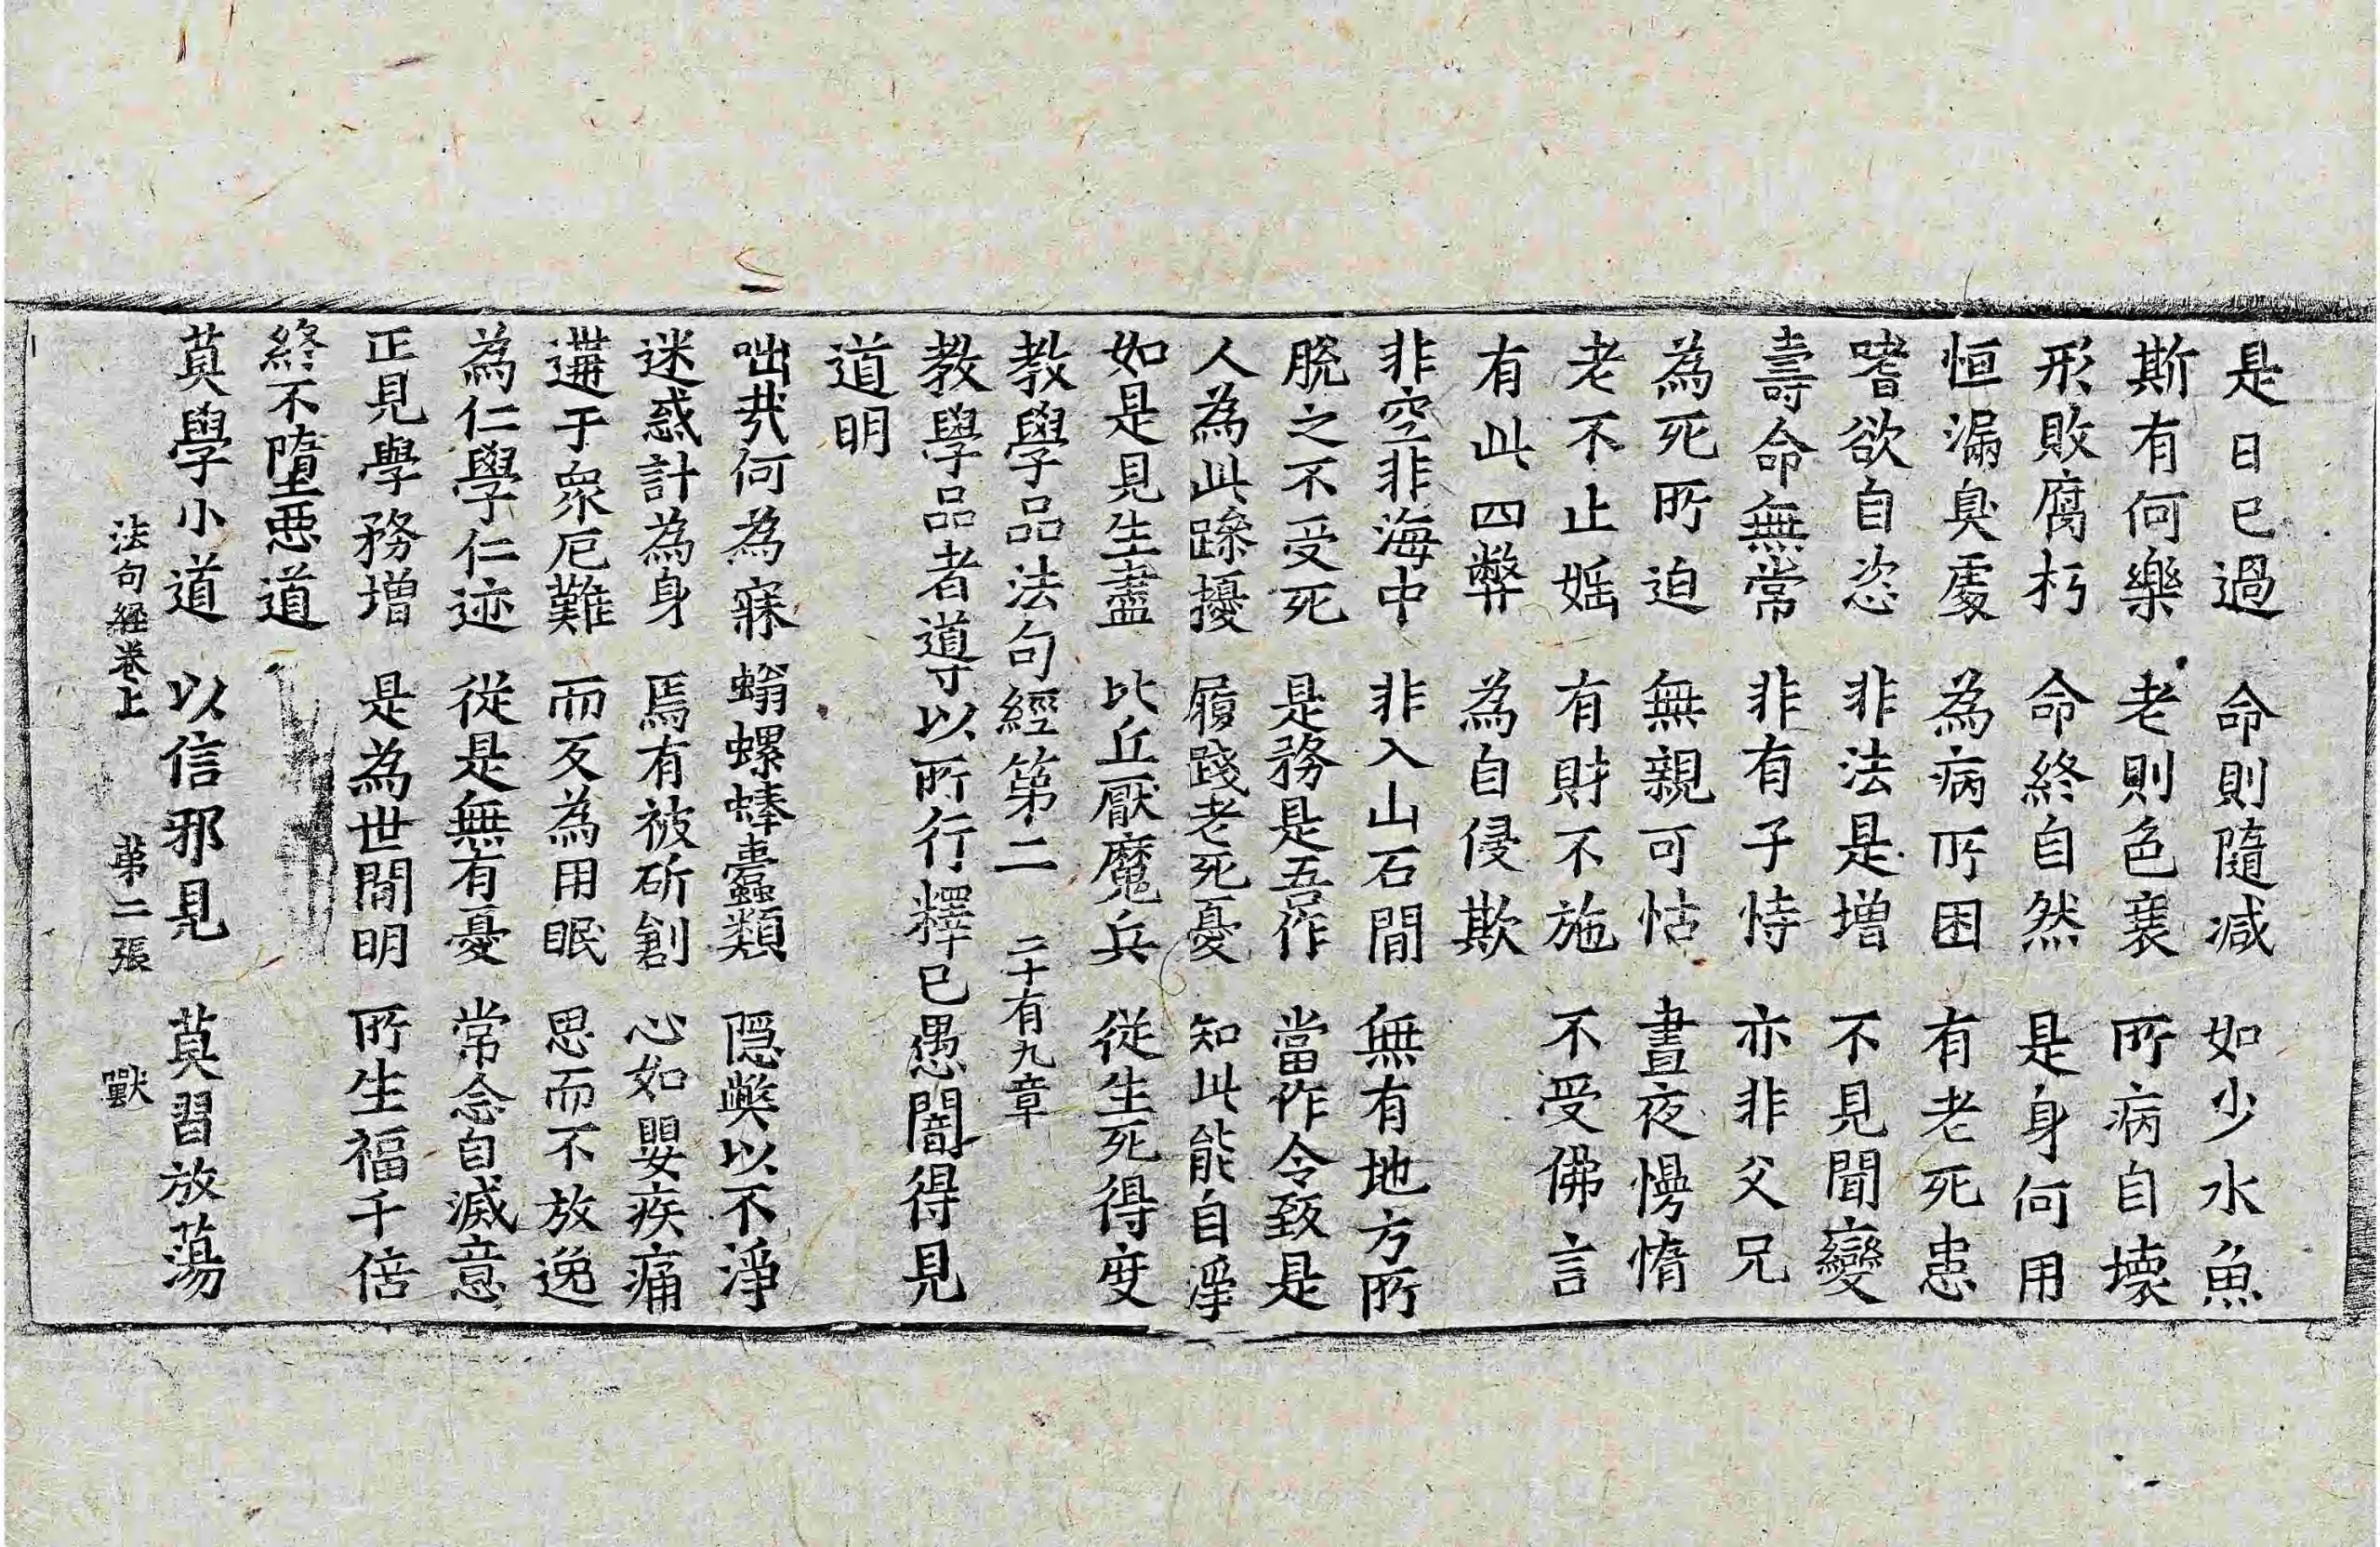 是日已過　命則隨減　如少水魚
斯有何樂　老則色衰　所病自壞
形敗腐朽　命終自然　是身何用
恒漏臭處　為病所困　有老死患
嗜欲自恣　非法是增　不見聞變
壽命無常　非有子恃　亦非父兄
為死所迫　無親可怙　晝夜慢惰
老不止婬　有財不施　不受佛言
有此四弊　為自侵欺
非空非海中　非入山石間　無有地方所
脫之不受死　是務是吾作　當作令致是
人為此躁擾　履踐老死憂　知此能自淨
如是見生盡　比丘厭魔兵　從生死得度
教學品法句經第二　二十有九章
教學品者導以所行釋已愚闇得見
道明
咄哉何為寐　螉螺蜯蠹類　隱弊以不淨
迷惑計為身　焉有被斫創　心如嬰疾痛
遘于眾厄難　而反為用眠　思而不放逸
為仁學仁迹　從是無有憂　常念自滅意
正見學務增　是為世間明　所生福千倍
終不墮惡道
莫學小道　以信邪見　莫習放蕩
法句經卷上　第二張　獸